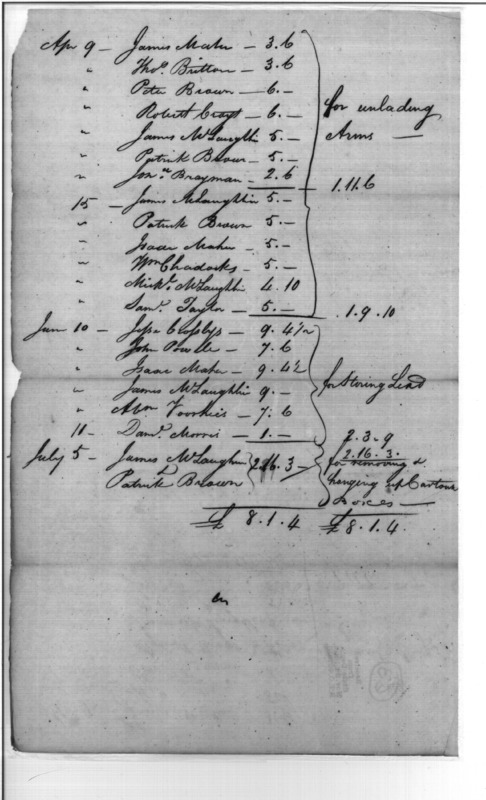 Apr 9 - James Maher - 3.6
" Thos. Britton - 3.6
" Peter Brown - 6.-
" Robert Crays - 6.- for unlading
" James McLaughlin 5.- Arms -
" Patrick Brown - 5.-
" Jonn. Brayman - 2.6 1.11.6
15 - James McLaughlin 5.-
" Patrick Brown 5.-
" Isaac Maher - 5.-
" Wm Chadocks - 5.-
" Michl. McLaughlin 4.10
" Saml. Taylor - 5.- 1.9.10
Jun 10 - Jesse Croslys - 9.4½
" John Powell - 7.6
" Isaac Maher - 9.4½ for Storing Lead
" James McLaughlin 9.-
" Abm Voorhies - 7.6
11 - Danl. Morris - 1.- 2.3.9
July 5 - James McLaughlin 2.16.3 - 2.16.3.
& for removing &
Patrick Brown henging up Cartone
Boxes -
£ 8.1.4 £ 8.1.4